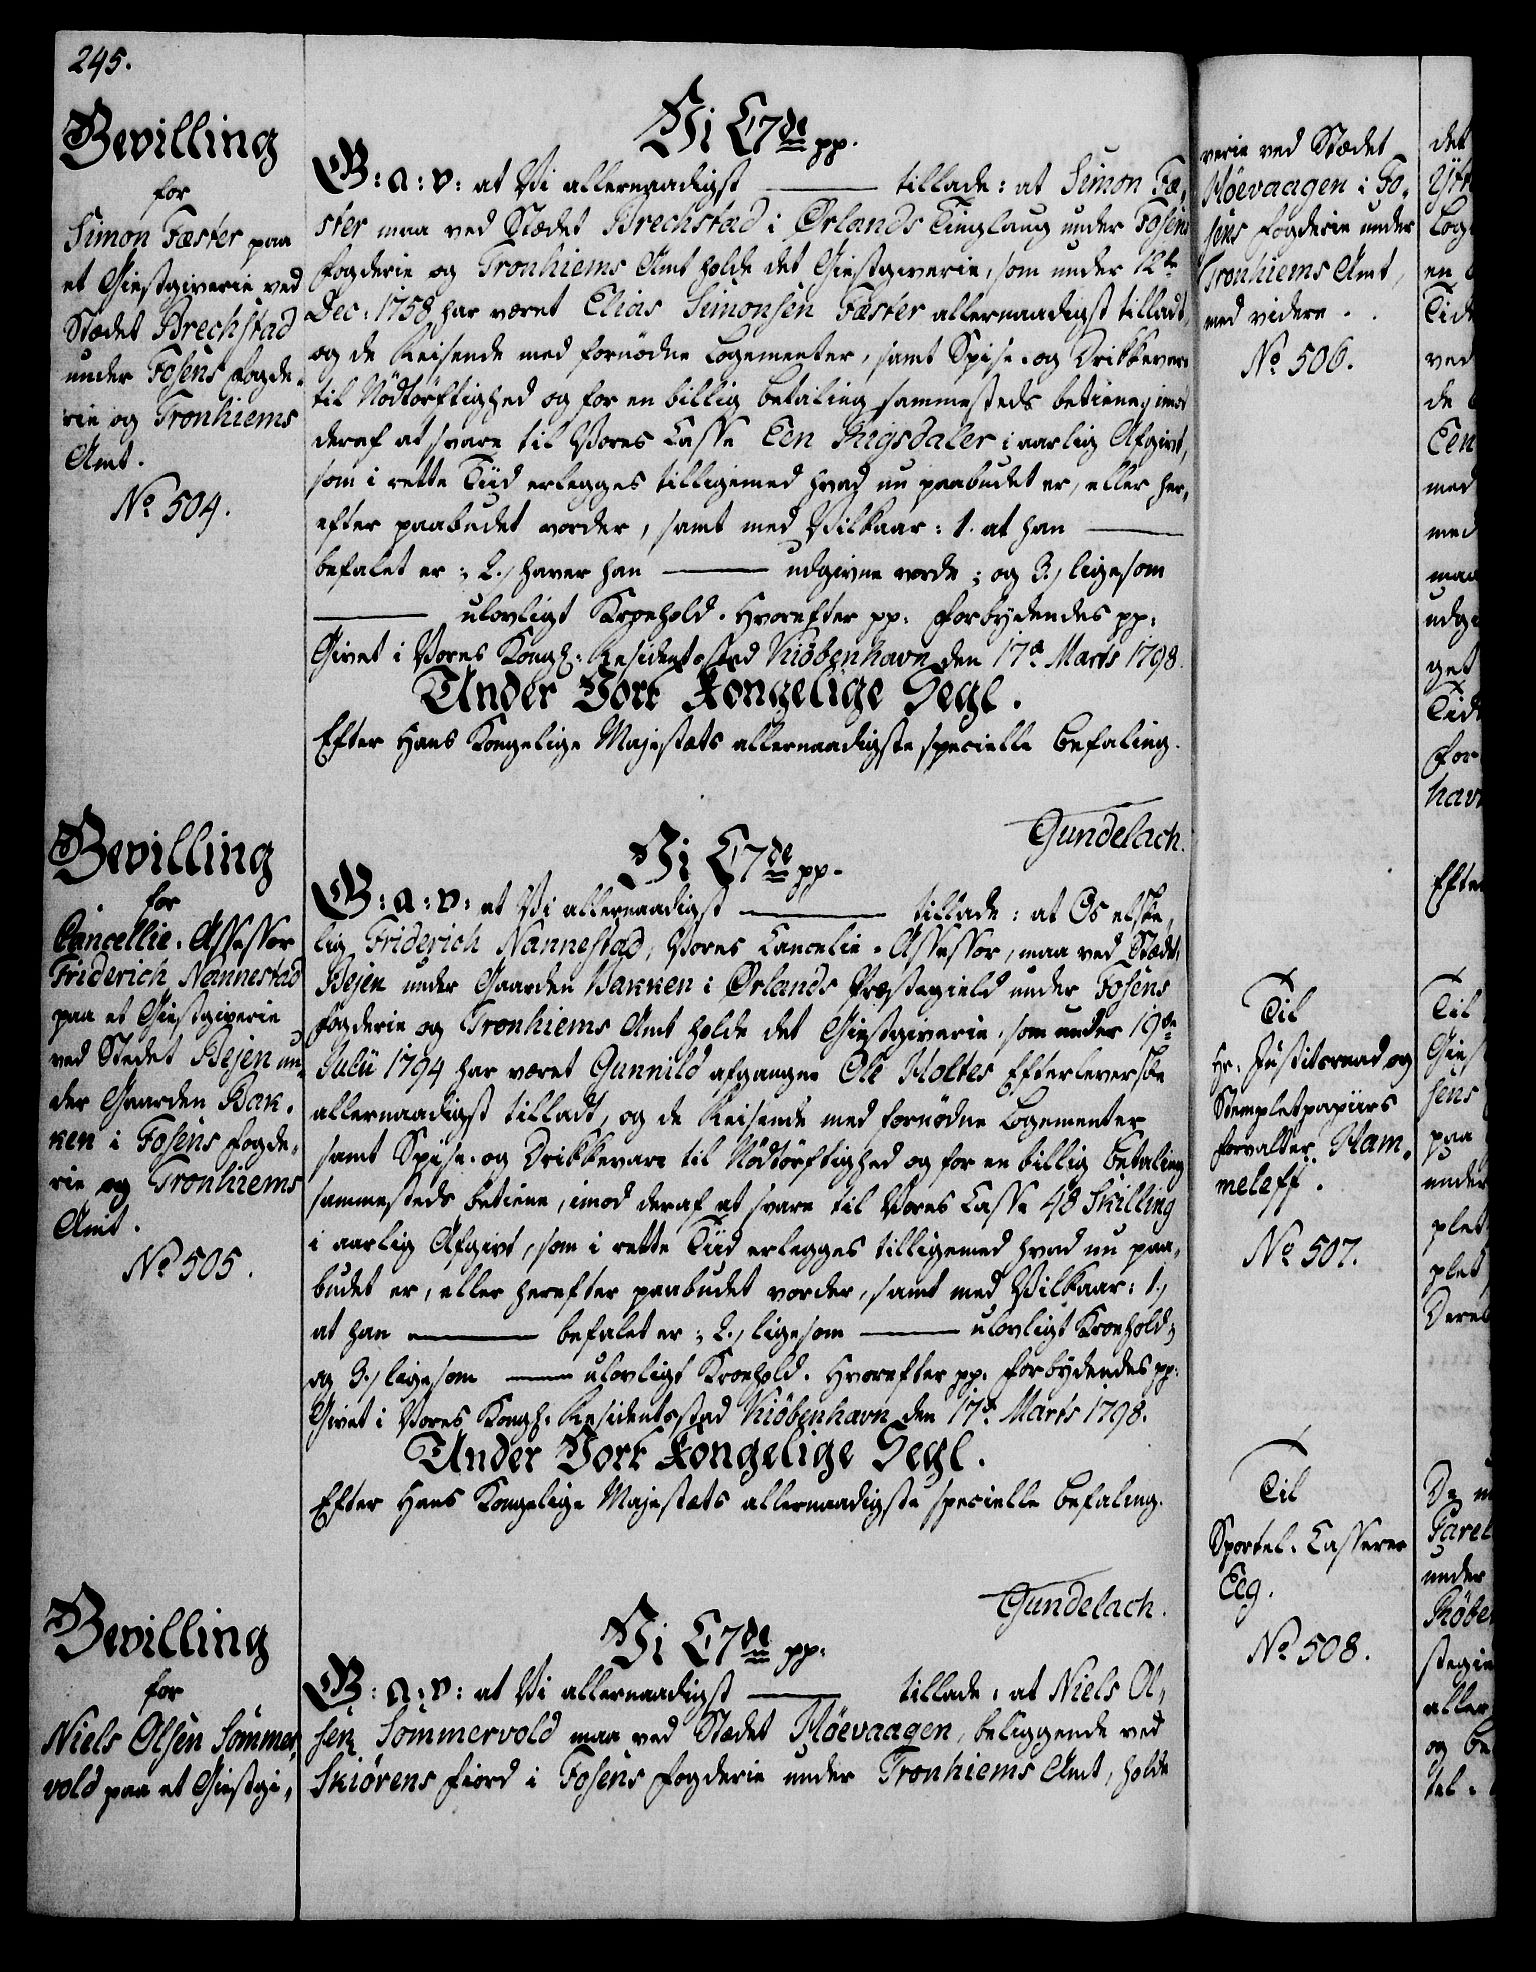 245.
Bevilling
for
Simon Fæster paa
et Giestgiverie ved
Stædet Brechstad
under Fosens Fogde-
rie og Tronhiems
Amt.
No 504.
Vi C7de pp.
G: A: V: at Vi allernaadigst ——— tillade: at Simon Fæ-
ster maa ved Stædet Brechstad i Ørlands Tinglaug under Fosens
Fogderie og Tronhiems Amt holde det Giestgiverie, som under 12te
Dec: 1758 har været Elias Simonsen Fæster allernaadigst tilladt,
og de Reisende med fornödne Logementer, samt Spise- og Drikkevare
til Nödtörftighed og for en billig Betaling sammesteds betiene, imod
deraf at svare til Vores Casse Een Rigsdaler i aarlig Afgivt,
som i rette Tiid erlegges tilligemed hvad nu paabudet er, eller her-
efter paabudet vorder, samt med Vilkaar: 1. at han ———
befalet er; 2., haver han ——— udgivne vorde; og 3., ligesom
——— ulovligt Kroehold. Hvorefter pp. Forbydendes pp:
Givet i Vores Kongl: Residentsstad Kiöbenhavn den 17de Marts 1798.
Under Vort Kongelige Segl.
Efter Hans Kongelige Majestæts allernaadigste specielle Befaling.
Gundelach.
Bevilling
for
Cancellie-Assessor
Friderich Nannestad
paa et Giestgiverie
ved Stedet Bejen un-
der Gaarden Bak-
ken i Fosens Fogde-
rie og Tronhiems
Amt.
No 505.
Vi C7de pp.
G: A: V: at Vi allernaadigst ——— tillade: at Os elske-
lig Friderich Nannestad, Vores Cancelie-Assessor, maa ved Stædet
Bejen under Gaarden Bakken i Ørlands Præstegield under Fosens
Fogderie og Tronhiems Amt holde det Giestgiverie, som under 19de
Julii 1794 har været Gunnild afgangne Ole Holtes Efterleverske
allernaadigst tilladt, og de Reisende med fornödne Logementer
samt Spise- og Drikkevare til Nödtörftighed og for en billig Betaling
sammesteds betiene, imod deraf at svare til Vores Casse 48 Skilling
i aarlig Afgivt, som i rette Tiid erlegges tilligemed hvad nu paa-
budet er, eller herefter paabudet vorder, samt med Vilkaar: 1.,
at han ——— befalet er; 2., ligesom ——— ulovligt Kroehold;
og 3., ligesom ——— ulovligt Kroehold. Hvorefter pp. Forbydendes pp:
Givet i Vores Kongl: Residentsstad Kiöbenhavn den 17de Marts 1798.
Under Vort Kongelige Segl.
Efter Hans Kongelige Majestæts allernaadigste specielle Befaling.
Gundelach.
Bevilling
for
Niels Olsen Sommer-
vold paa et Giestgi-
Vi C7de pp.
G: A: V: at Vi allernaadigst ——— tillade: at Niels Ol-
sen Sommervold maa ved Stædet Höevaagen, beliggende ved
Skiörens Fiord i Fosens Fogderie under Tronhiems Amt, holde
verie ved Stædet
Höevaagen i Fo-
sens Fogderie under
Tronhiems Amt,
med videre.
No 506.
Til
Hr. Justitsraad og
Stempletpapiirs
Forvalter Ham-
meleff.
No 507.
Til
Sportel-Casserer
Eeg.
No 508.
det
Log
en
Tid
ved
de
Een
med
med
maa
udgi
get
Tid
For
havn
Efter
Til
Giest
sens
paa
under
plet
plet
Deres
De
under
Kiöbe
stegie
aller
og be
tel.